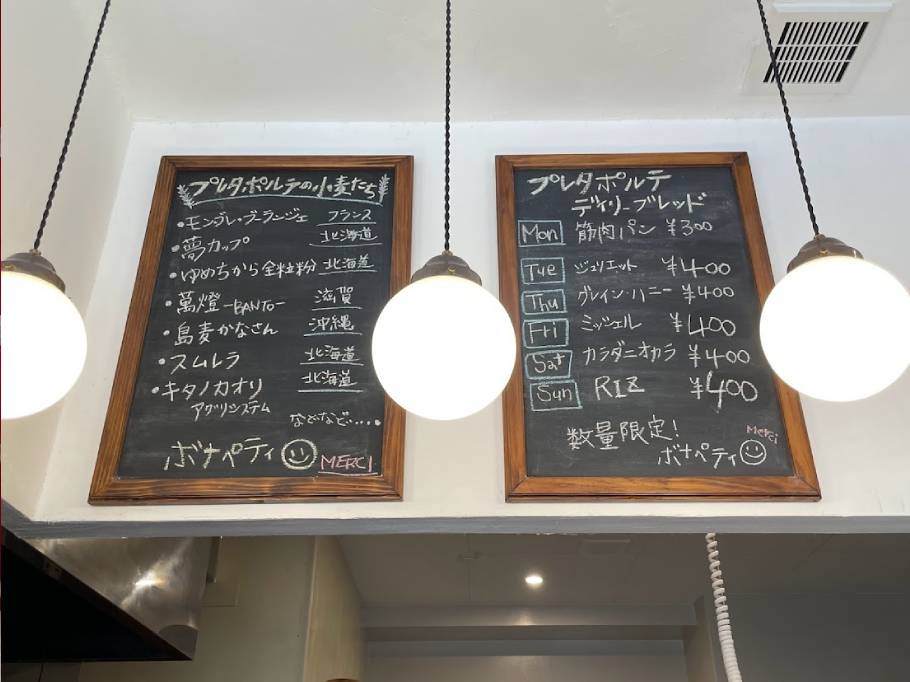 プレタポルテの小麦たち
・モンブレ・ブーランジェ フランス
・夢カップ 北海道
・ゆめちから全粒粉 北海道
・萬燈 -BANTO- 滋賀
・島麦かなさん 沖縄
・スムレラ 北海道
・キタノカオリ 北海道
アグリシステム
などなど.....
ボナペティ MERCI
プレタポルテ
デイリーブレッド
Mon 筋肉パン ¥300
Tue ジュリエット ¥400
Thu グレイン・ハニー ¥400
Fri ミッシェル ¥400
Sat カラダニオカラ ¥400
Sun RIZ ¥400
数量限定!
Merci
ボナペティ